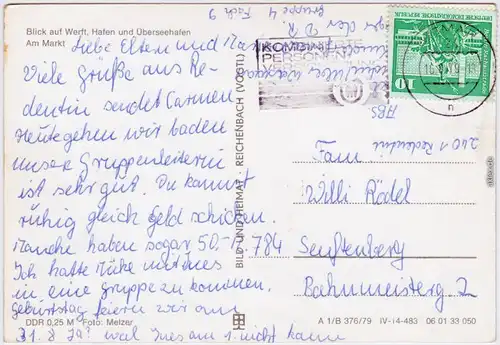 Blick auf Werft, Hafen und Überseehafen
Am Markt
Liebe Eltern und
Viele Grüße aus Re-
dentin sendet Carmen
Heute gehen wir baden
unsere Gruppenleiterin
ist sehr gut. Du kannst
ruhig gleich Geld schicken.
Manche haben sogar 50.- M.
Ich hatte Mühe mit Ines
in eine Gruppe zu kommen.
Geburtstag feiern wir am
31.8 Ja? weil Ines am 1. nicht kann
DDR 0,25 M Foto: Melzer
BILD UND HEIMAT REICHENBACH (VOGTL)
Gruppe 4 Fach 9
der D.R.
KOMBINIERTE
PERSONEN
10
DEUTSCHE DEMOKRATISCHE REPUBLIK
2401 Redentin
Fam.
Willi Rödel
784
Senftenberg
Bahnmeisterg. 2
A 1/B 376/79 IV-14-483 06 01 33 050